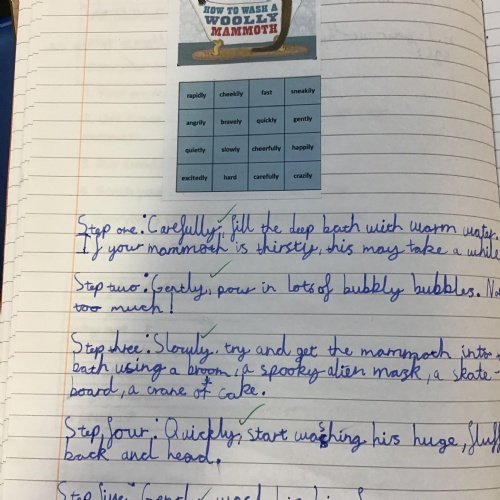 HOW TO WASH A
WOOLLY
MAMMOTH
rapidly cheekily fast sneakily
angrily bravely quickly gently
quietly slowly cheerfully happily
excitedly hard carefully crazily
Step one: Carefully, fill the deep bath with warm water.
If your mammoth is thirsty, this may take a while
Step two: Gently, pour in lots of bubbly bubbles.
too much!
Step three: Slowly, try and get the mammoth into
bath using a broom, a spooky alien mask, a skate-
board, a crane or cake.
Step four: Quickly, start washing his huge,
back and head.